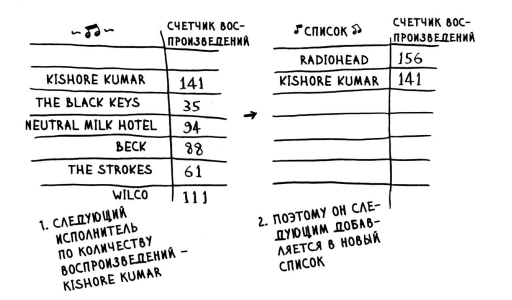 ~♫~
СЧЕТЧИК ВОС-
ПРОИЗВЕДЕНИЙ
KISHORE KUMAR 141
THE BLACK KEYS 35
NEUTRAL MILK HOTEL 94
BECK 88
THE STROKES 61
WILCO 111
1. СЛЕДУЮЩИЙ
ИСПОЛНИТЕЛЬ
ПО КОЛИЧЕСТВУ
ВОСПРОИЗВЕДЕНИЙ –
KISHORE KUMAR
→
♪СПИСОК♫
СЧЕТЧИК ВОС-
ПРОИЗВЕДЕНИЙ
RADIOHEAD 156
KISHORE KUMAR 141
2. ПОЭТОМУ ОН СЛЕ-
ДУЮЩИМ ДОБАВ-
ЛЯЕТСЯ В НОВЫЙ
СПИСОК